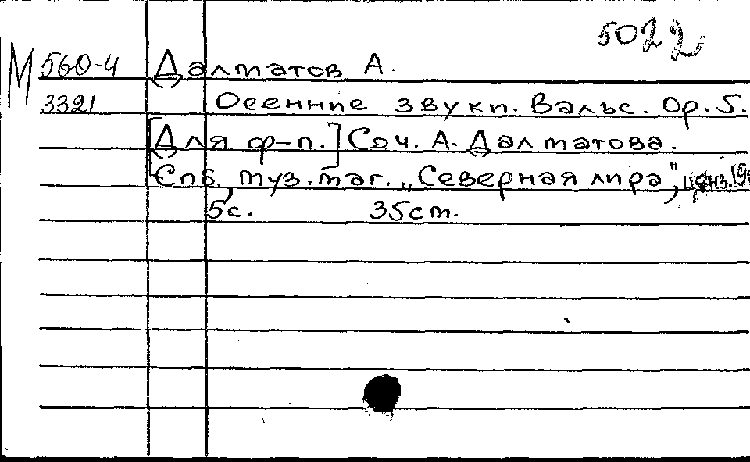 5022
М 560-4 Далматов А.
3321 Осенние звуки. Вальс. Op. 5.
[Для ф-п.] Соч. А. Далматова.
Спб, муз. маг. „Северная лира", ценз.
5с. 35см.